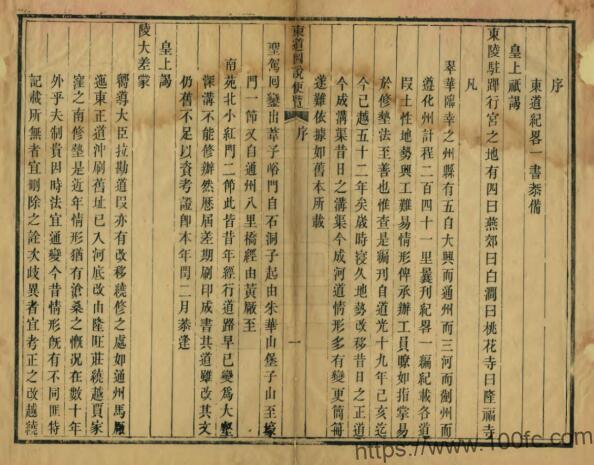 序
東道紀畧一書恭備
皇上祇謁
東陵駐蹕行宮之地有四曰燕郊曰白澗曰桃花寺曰隆福寺
凡
翠華臨幸之州縣有五自大興而通州而三河而薊州而
遵化州計程二百四十一里曩刊紀畧一編紀載各道
叚土性地勢興工難易情形俾承辦工員瞭如指掌易
於修墊法至善也惟查是編刊自道光十九年己亥迄
今已越五十二年矣歲時寖久地勢改移昔日之正道
今成溝渠昔日之溝渠今成河道情形多有變更簡冊
遂難依據如舊本所載
東道圖說便覽
序
一
聖駕囘鑾出葦子峪門自石洞子起由朱華山堡子山至壕
門一節又自通州八里橋經由黃厰至
南苑北小紅門二節此皆昔年經行道路早已變爲大壑
深溝不能修辦然歷屆差期刷印成書其道雖改其文
仍舊不足以資考證卽本年閏二月恭逢
皇上謁
陵大差蒙
嚮導大臣拉勘道叚亦有改移繞修之處如通州馬厰
迤東正道沖刷舊址已入河底改由隆旺莊繞越賈家
窪之南修墊是近年情形猶有滄桑之慨況在數十年
外乎夫制貴因時法宜通變今昔情形旣有不同毘特
記載所無者宜刪除之詮次歧異者宜考正之改越繞
https://www.100fc.com